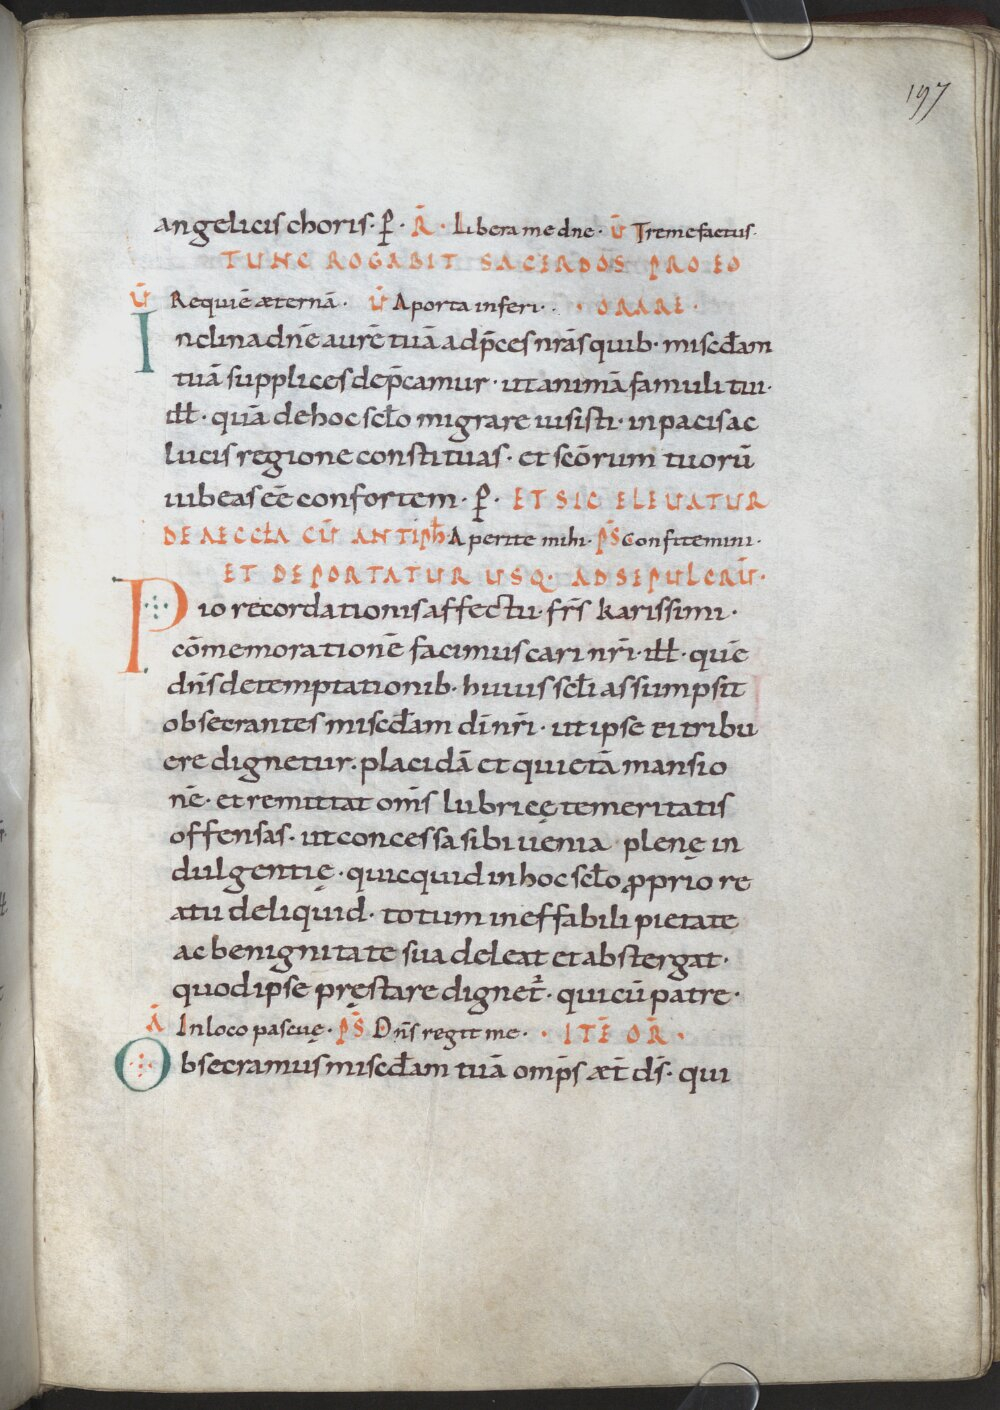 197
angelicis choris · P̄ · R̄ · Libera me dne · V̄ Tremefactus ·
TUNC ROGABIT SACERDOS PRO EO
V̄ Requiē æternā · V̄ A porta inferi · · ORARE ·
Inclina dn̄e aurē tuā ad p̄ces nr̄as quib · miscd̄am
tuā supplices dep̄camur · ut animā famuli tui ·
ill̄ · quā de hoc scl̄o migrare iusisti · in pacis ac
lucis regione constituas · et scōrum tuorū
iubeas eē confortem · P̄ · ET SIC ELEVATUR
DE AECCL̄A CŪ ANTIPH̄ Aperite mihi · PS̄ Confitemini ·
ET DEPORTATUR USQ · AD SEPULCRŪ ·
Pio recordationis affectu · fr̄s karissimi ·
cōmemorationē facimus cari nr̄i · ill̄ · quē
dn̄s de temptationib · huius scl̄i assumpsit
obsecrantes miscd̄am dī nr̄i · ut ipse ei tribu
ere dignetur · placidā et quietā mansio
nē · et remittat om̄s lubricę temeritatis
offensas · ut concessa sibi uenia plenę in
dulgentię · quicquid in hoc scl̄o ꝓprio re
atu deliquid · totum ineffabili pietate
ac benignitate sua deleat et abstergat ·
quod ipse pręstare dignet̄ · qui cū patre ·
Ā In loco pascuę · PS̄ Dn̄s regit me · · ITĒ OR̄ ·
Obsecramus miscd̄am tuā omp̄s æt̄ ds̄ · qui